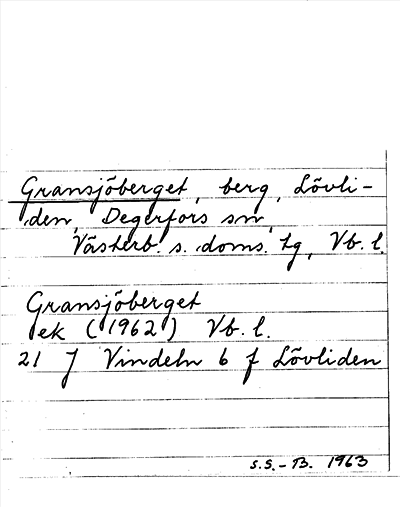 Gransjöberget, berg, Lövli-
den, Degerfors sn,
Västerb. s. doms. tg, Vb. l.
Gransjöberget
ek (1962) Vb. l.
21 J Vindeln 6 f Lövliden
S.S.-B. 1963